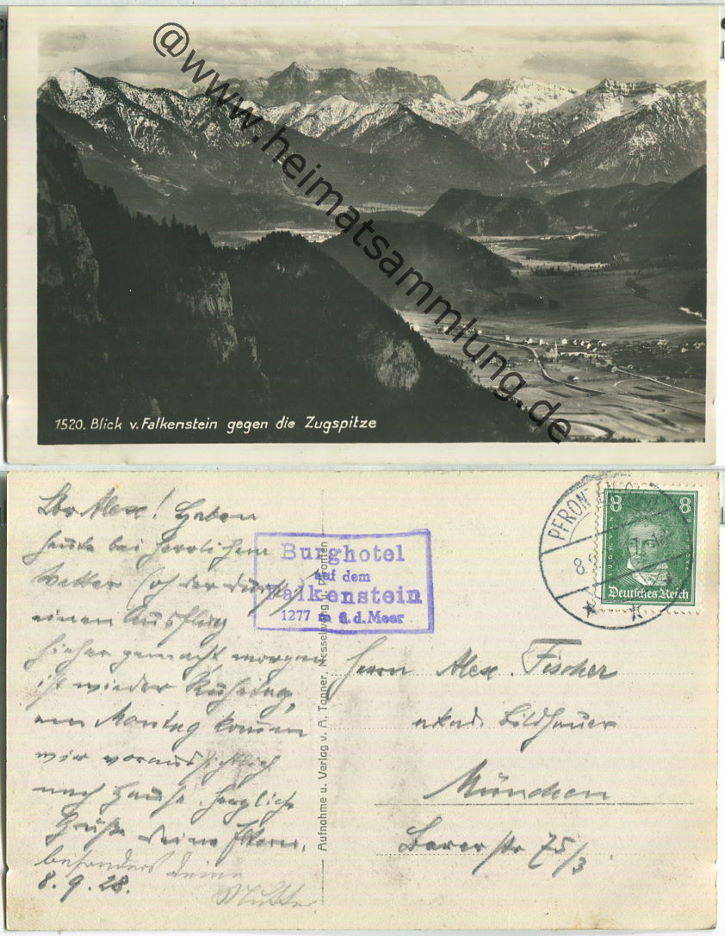 @www.heimatsammlung.de
1520. Blick v. Falkenstein gegen die Zugspitze
Lbr Alex! Haben
heute bei herrlichem
Wetter (oh der Durst)
einen Ausflug
hieher gemacht, morgen
ist wieder Ruhetag,
am Montag kommen
wir voraussichtlich
nach Hause. Herzliche
Grüße deine Eltern,
besonders deine
Mutter
8.9.28.
Burghotel
auf dem
Falkenstein
1277 m ü.d.Meer
Aufnahme u. Verlag v. A. Tanner, Nesselwang u. Pfronten
PFRONTEN
8 8
Deutsches Reich
Herrn Alex. Fischer
akad. Bildhauer
München
Barerstr 75/3